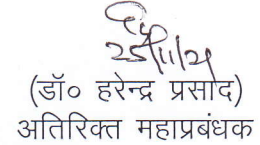 25/11/21
(डॉ० हरेन्द्र प्रसाद)
अतिरिक्त महाप्रबंधक